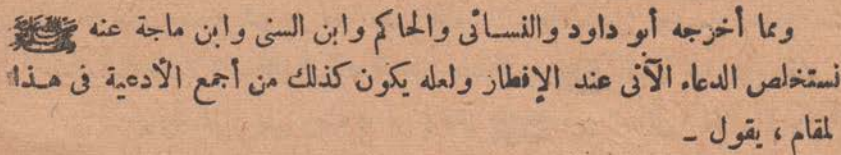 ومما أخرجه أبو داود والنسائى والحاكم وابن السنى وابن ماجة عنه ﷺ
نستخلص الدعاء الآتى عند الإفطار ولعله يكون كذلك من أجمع الأدعية فى هذا
لمقام ، يقول -